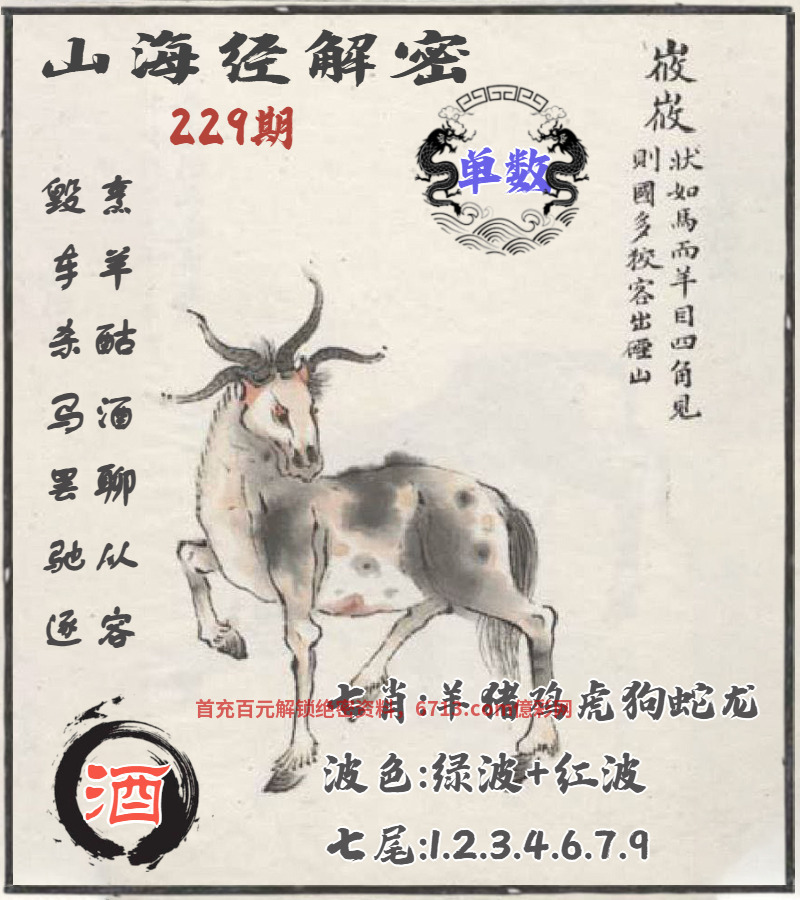 山海经解密
229期
单数
峳峳
狀如馬而羊目四角見
則國多狡客出硬山
烹羊酤酒聊从容
毁车杀马罢驰逐
七肖:羊猪鸡虎狗蛇龙
首充百元解锁绝密资料,6713.com億彩网
酒
波色:绿波+红波
七尾:1.2.3.4.6.7.9